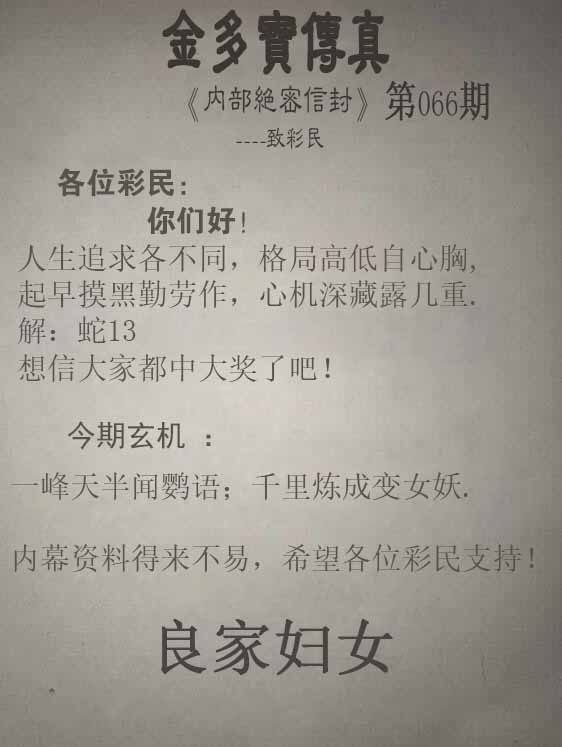 金多寶傳真
《内部絶密信封》第066期
----致彩民
各位彩民:
你们好!
人生追求各不同，格局高低自心胸,
起早摸黑勤劳作，心机深藏露几重.
解：蛇13
想信大家都中大奖了吧!
今期玄机 ：
一峰天半闻鹦语；千里炼成变女妖.
内幕资料得来不易，希望各位彩民支持!
良家妇女